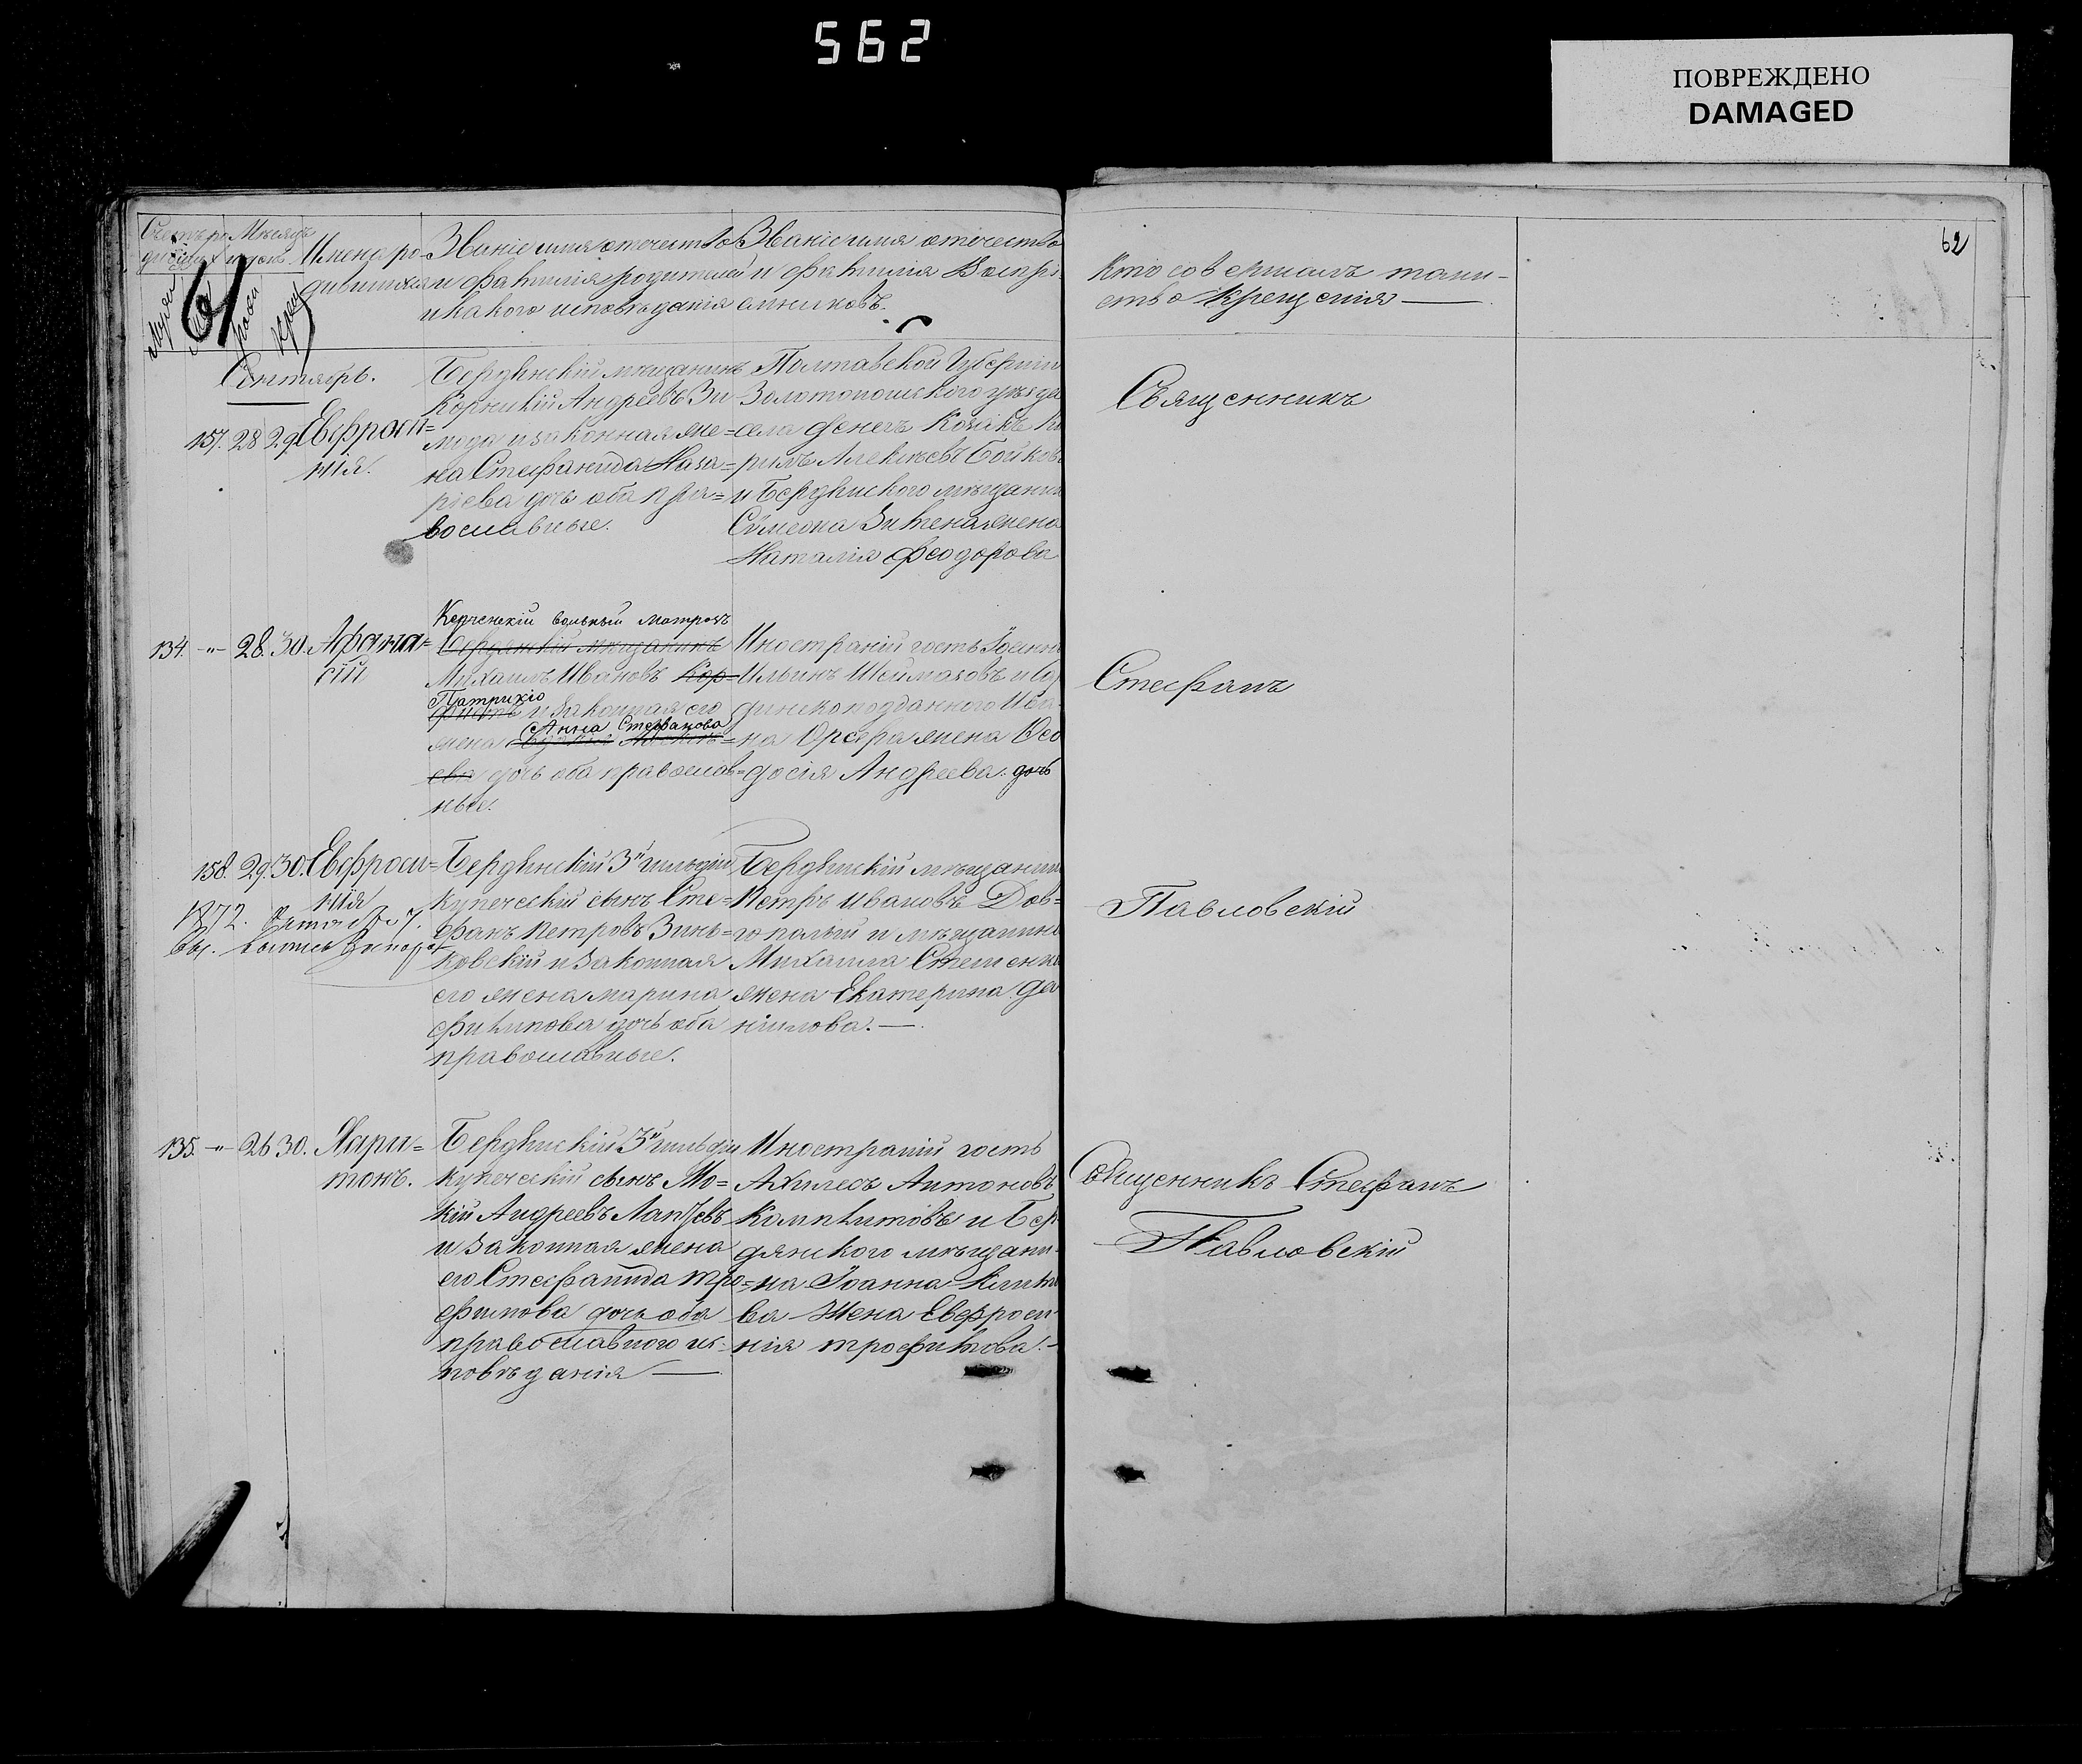 562
ПОВРЕЖДЕНО
DAMAGED
62
Счетъ ро Мѣсяцъ
Имена ро-
дившихся
Званіе имя отечество
и фамилія родителей
и какого исповѣданія
Званіе имя отечество
и фамилія Воспрі
емниковъ.
Кто совершалъ таин-
ство крещенія —
Сентябрь.
157. 28 29 Евфроси=
нія.
Бердянскій мѣщанинъ
Корникій Андреевъ Зи
мода и законная же=
на Стефанида Наза=
ріева дочь оба пра=
вославные.
Полтавской Губерніи
Золотоношского уѣзда
села Козакъ
Алексѣевъ Бойковъ
и Бердянского мѣщанин
Сѵмеона жена
Наталія Феодорова
Священникъ
134. -"- 28. 30. Афана=
сій
Керченскій вольный матрозъ
Бердянскій мѣщанинъ
Михаилъ Ивановъ Кор=
Патрикіо
и законная его
Анна Стефанова
жена
ева дочь оба православ=
ные.
Иностраній гость Іоанн
Ильинъ и Сар
динскоподданного Ива
на Орсера жена Оео
досія Андреева. дочь
Стефанъ
158. 29. 30. Евфроси=
нія
1872.
Бердянскій 3й гильдіи
купеческій сынъ Сте=
фанъ Петровъ Зинь=
ковскій и законная
его жена Марина
Филипова дочь оба
православные.
Бердянскій мѣщанин
Петръ Ивановъ Дов=
гополый и мѣщанина
Михаила Стешенка
жена Екатерина Да
ніилова. —
Павловскій
135. -"- 26 30. Хари=
тонъ.
Бердянскій 3й гильдіи
купеческій сынъ Мо=
кій Андреевъ Лапѣевъ
и законная жена
его Стефанида Тро=
фимова дочь оба
православного ис=
повѣданія —
Иностраній гость
Ахилесъ Антоновъ
и Бер
дянского мѣщани-
на Іоанна
ва жена Евфроси-
нія Трофимова. -
Священникъ Стефанъ
Павловскій